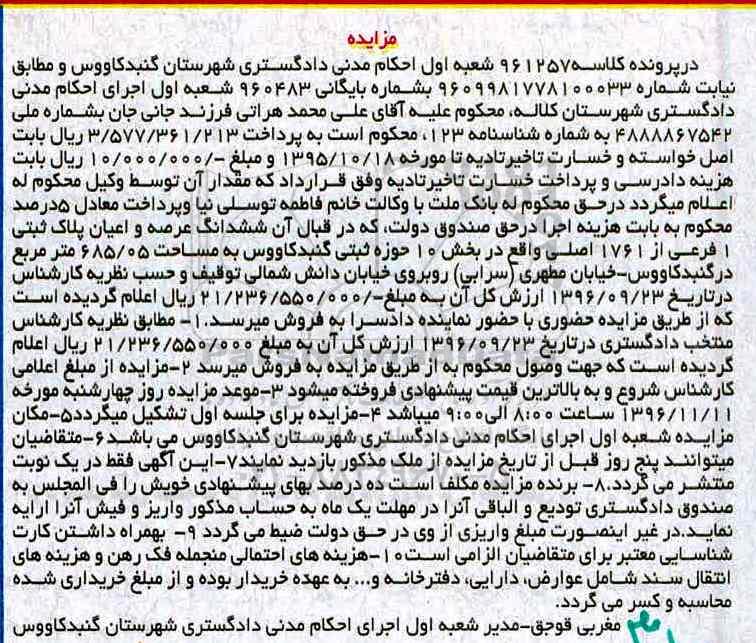 مزایده
درپرونده کلاسه۹۶۱۲۵۷ شعبه اول احکام مدنی دادگستری شهرستان گنبدکاووس و مطابق
نیابت شماره ۹۶۰۹۹۸۱۷۷۸۱۰۰۰۳۳ بشماره بایگانی ۹۶۰۴۸۳ شعبه اول اجرای احکام مدنی
دادگستری شهرستان کلاله، محکوم علیه آقای علی محمد هراتی فرزند جانی جان بشماره ملی
۴۸۸۸۸۶۷۵۴۲ به شماره شناسنامه ۱۲۳، محکوم است به پرداخت ۳/۵۷۷/۳۶۱/۲۱۳ ریال بابت
اصل خواسته و خسارت تاخیرتادیه تا مورخه ۱۳۹۵/۱۰/۱۸ و مبلغ -/۱۰/۰۰۰/۰۰۰ ریال بابت
هزینه دادرسی و پرداخت خسارت تاخیرتادیه وفق قرارداد که مقدار آن توسط وکیل محکوم له
اعلام میگردد درحق محکوم له بانک ملت با وکالت خانم فاطمه توسلی نیا وپرداخت معادل ۵درصد
محکوم به بابت هزینه اجرا درحق صندوق دولت، که در قبال آن ششدانگ عرصه و اعیان پلاک ثبتی
۱ فرعی از ۱۷۶۱ اصلی واقع در بخش ۱۰ حوزه ثبتی گنبدکاووس به مساحت ۶۸۵/۰۵ متر مربع
درگنبدکاووس-خیابان مطهری (سرابی) روبروی خیابان دانش شمالی توقیف و حسب نظریه کارشناس
درتاریخ ۱۳۹۶/۰۹/۲۳ ارزش کل آن به مبلغ-/۲۱/۲۳۶/۵۵۰/۰۰۰ ریال اعلام گردیده است
که از طریق مزایده حضوری با حضور نماینده دادسرا به فروش میرسد.۱- مطابق نظریه کارشناس
منتخب دادگستری درتاریخ ۱۳۹۶/۰۹/۲۳ ارزش کل آن به مبلغ ۲۱/۲۳۶/۵۵۰/۰۰۰ ریال اعلام
گردیده است که جهت وصول محکوم به از طریق مزایده به فروش میرسد ۲-مزایده از مبلغ اعلامی
کارشناس شروع و به بالاترین قیمت پیشنهادی فروخته میشود ۳-موعد مزایده روز چهارشنبه مورخه
۱۳۹۶/۱۱/۱۱ ساعت ۸:۰۰ الی۹:۰۰ میباشد ۴-مزایده برای جلسه اول تشکیل میگردد۵-مکان
مزایده شعبه اول اجرای احکام مدنی دادگستری شهرستان گنبدکاووس می باشد۶-متقاضیان
میتوانند پنج روز قبل از تاریخ مزایده از ملک مذکور بازدید نمایند۷-این آگهی فقط در یک نوبت
منتشر می گردد.۸- برنده مزایده مکلف است ده درصد بهای پیشنهادی خویش را فی المجلس به
صندوق دادگستری تودیع و الباقی آنرا در مهلت یک ماه به حساب مذکور واریز و فیش آنرا ارایه
نماید.در غیر اینصورت مبلغ واریزی از وی در حق دولت ضبط می گردد ۹- بهمراه داشتن کارت
شناسایی معتبر برای متقاضیان الزامی است۱۰-هزینه های احتمالی منجمله فک رهن و هزینه های
انتقال سند شامل عوارض، دارایی، دفترخانه و... به عهده خریدار بوده و از مبلغ خریداری شده
محاسبه و کسر می گردد.
مغربی قوجق-مدیر شعبه اول اجرای احکام مدنی دادگستری شهرستان گنبدکاووس